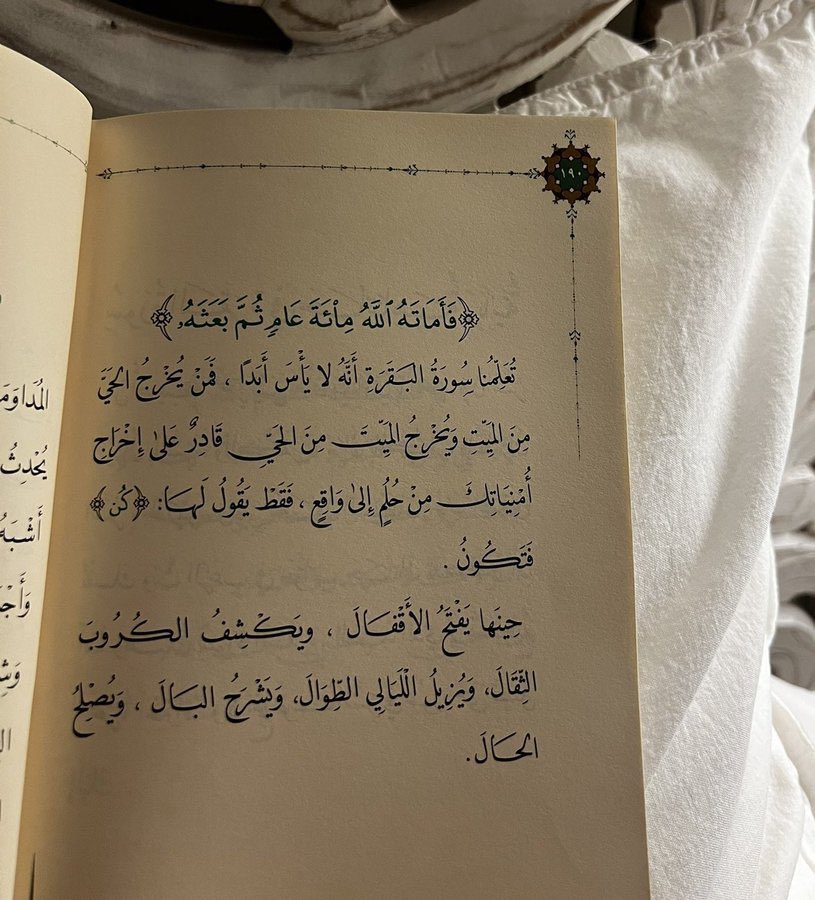 ١٩٠
﴿فَأَمَاتَهُ ٱللَّهُ مِاْئَةَ عَامٖ ثُمَّ بَعَثَهُۥ﴾
تُعَلِّمُنا سُورَةُ البَقَرَةِ أَنَّهُ لا يَأْسَ أَبَدًا ، فَمَنْ يُخْرِجُ الحَيَّ
مِنَ المَيِّتِ وَيُخْرِجُ المَيِّتَ مِنَ الحَيِّ قَادِرٌ عَلَىٰ إِخْرَاجِ
أُمْنِيَاتِكَ مِنْ حُلُمٍ إِلىٰ وَاقِعٍ ، فَقَطْ يَقُولُ لَهَا: ﴿كُن﴾
فَتَكُونُ .
حِينَها يَفْتَحُ الأَقْفَالَ ، ويَكْشِفُ الكُرُوبَ
الثِّقَالَ، وَيُزِيلُ الْلَيَالِي الطِّوَالَ، وَيَشْرَحُ البَالَ ، وَيُصْلِحُ
الحَالَ.
المُدَاوَمَ
يُحْدِثُ